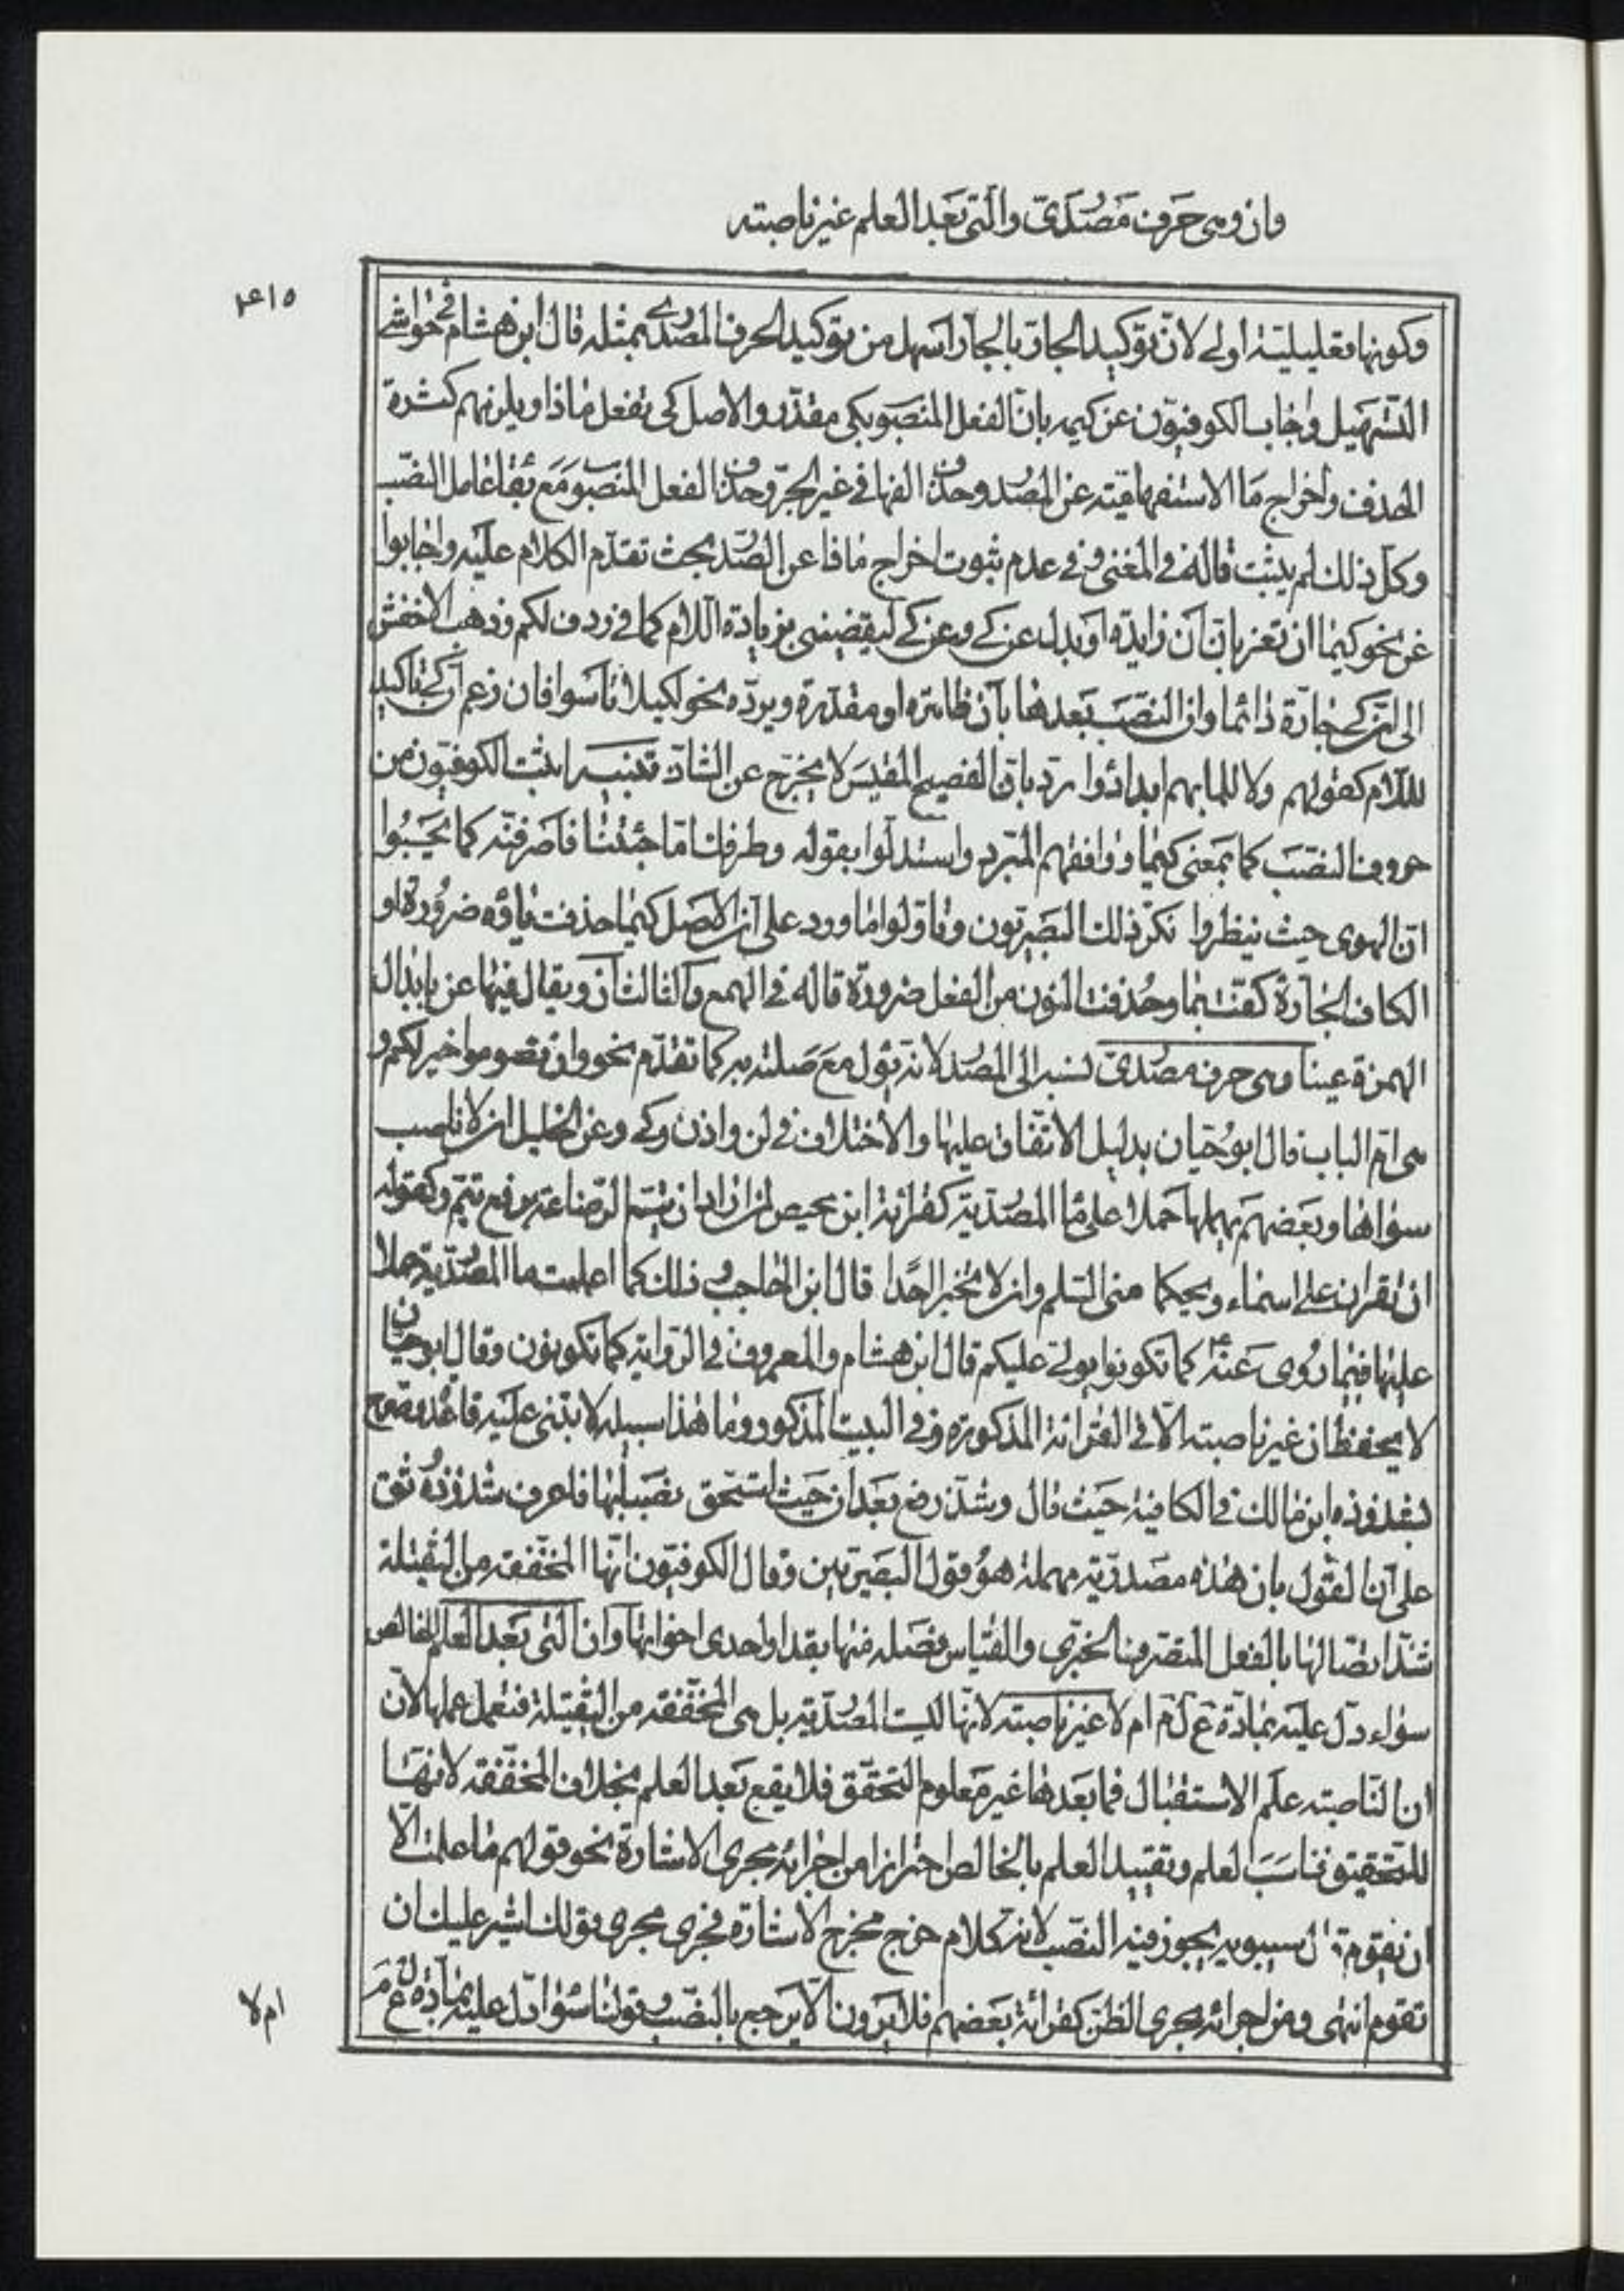 وان وهى حرف مصدرىّ والتى بعد العلم غير ناصبته
۴۱۵
وكونها تعليليته اولى لانّ توكيد الجارّ بالجارّ اسهل من توكيد الحرف المصدرى بمثله قال ابن هشام فى حواشى
التسهيل واجاب الكوفيون عن كيمه بانّ الفعل المنصوب بكى مقدّر والاصل كى تفعل ماذا ويلزمهم كثرة
الحذف واخراج ما الاستفهاميته عن الصدر وحذف الفها فى غير الجرّ وحذف الفعل المنصوب مع بقاء عامل النصب
وكلّ ذلك لم يثبت قاله فى المغنى وفى عدم ثبوت اخراج ما فا عن الصّدر بحث تقدّم الكلام عليه واجابوا
عن نحو كيما ان تغر بانّ ان زايدة او بدل عن كى وعن كى ليقضينى بزيادة اللام كما فى ردف لكم وذهب الاخفش
الى انّ كى جارة دائما وان النصب بعدها بان ظاهره او مقدّرة ويردّه نحو لكيلا تاسوا فان زعم انّ كى تاكيد
للّام كقولهم ولا للما بهم ابدا دوا ردّ بانّ الفصيح المقيس لا يخرّج عن الشاذّ تنبيه اثبت الكوفيون من
حروف النصب كما بمعنى كيما ووافقهم المبرد واستدلّوا بقوله وطرفك امّا جئتنا فاصرفنّه كما يحسبوا
انّ الهوى حيث تنظروا نكر ذلك البصريون وتاوّلوا ما ورد على انّ الاصل كيما حذفت ياؤه ضرورة او
الكاف الجارة كفت بما وحذفت النون من الفعل ضرورة قاله فى الهمع والثالث ان ويقال فيها عن بابدال
الهمزة عينا وهى حرف مصدرىّ نسبه الى المصدر لانّه يؤل مع صلته به كما تقدّم نحو وان تصوموا خير لكم و
هى امّ الباب قال ابو حيان بدليل الاتّفاق عليها والاختلاف فى لن واذن وكى وعن الخليل انّه لا ناصب
سواها وبعضهم يهملها حملا على ما المصدّرية كقرائة ابن محيص لمن اراد ان يتمّ الرّضاعة برفع تتم وكقوله
ان تقران على اسماء ويحكما منى السّلم وان لا تخبر احدا قال ابن الحاجب وذلك كما اعلمت ما المصدرية حملا
عليها فيما روى عنه ع كما تكونوا يولّى عليكم قال ابن هشام والمعروف فى الرّوايه كما تكونون وقال ابو حيان
لا يحفظ ان غير ناصبته الّا فى القرائة المذكورة وفى البيت المذكور وما هذا سبيله لا تبتنى عليه قاعده وصرّح
بشذوذه ابن مالك فى الكافيه حيث قال وشذّ رفع بعد ان حيث استحقّ نصب لها فاعرف شذوذه ثق
على انّ القول بان هذه مصدريّه مهملة هو قول البصريين وقال الكوفيون انّها المخفّفة من الثقيلة
شذّ اتصالها بالفعل المتصرف الخبرى والقياس فصله منها بقد او احدى اخواتها وان التى بعد العلم الخالص
سواء دلّ عليه بمادّة ع ل م ام لا غير ناصبته لانّها ليست المصدّرية بل هى المخفّفة من الثقيلة فتعمل عملها لانّ
ان الناصبته علم الاستقبال فما بعدها غير معلوم التحقّق فلا يقع بعد العلم بخلاف المخفّفة لانها
للتحقيق تناسب العلم وتقييد العلم بالخالص احتراز من اجرائه مجرى الاشارة نحو قولهم ما علمت الّا
ان تقوم قال سيبويه يجوز فيه النّصب لانه كلام خرج مخرج الاشارة فجرى مجرى قولك اشير عليك ان
تقوم انتهى ومن اجرائه مجرى الظن كقرائة بعضهم فلا يرون الّا يرجع بالنصب وقولنا سواء دل عليه بمادّة ع ل م
ام لا